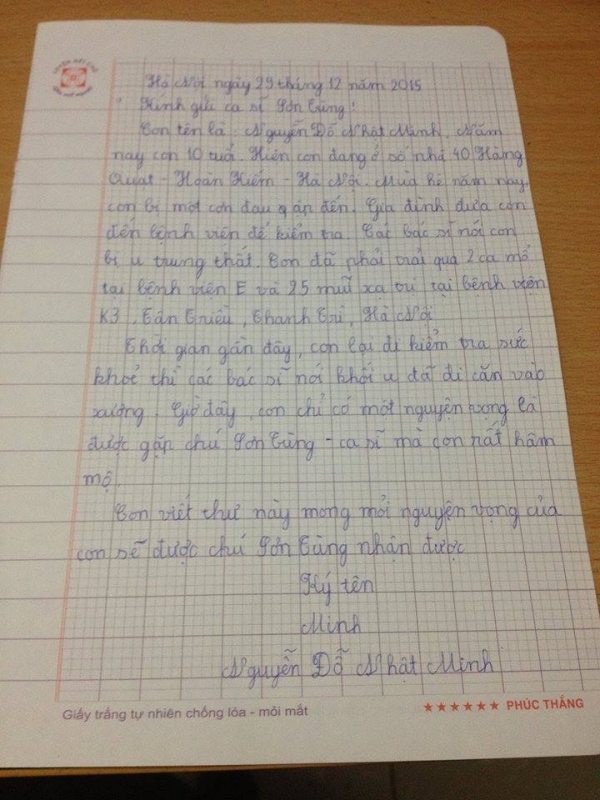 Hà Nội ngày 29 tháng 12 năm 2015
Kính gửi ca sĩ Sơn Tùng!
Con tên là: Nguyễn Đỗ Nhật Minh. Năm
nay con 10 tuổi. Hiện con đang ở số nhà 40 Hàng
Quạt - Hoàn Kiếm - Hà Nội. Mùa hè năm nay,
con bị một cơn đau ập đến. Gia đình đưa con
đến bệnh viện để kiểm tra. Các bác sĩ nói con
bị u trung thất. Con đã phải trải qua 2 ca mổ
tại bệnh viện E và 25 mũi xạ trị tại bệnh viện
K3, Tân Triều, Thanh Trì, Hà Nội
Thời gian gần đây, con lại đi kiểm tra sức
khoẻ thì các bác sĩ nói khối u đã di căn vào
xương. Giờ đây, con chỉ có một nguyện vọng là
được gặp chú Sơn Tùng - ca sĩ mà con rất hâm
mộ.
Con viết thư này mong mỏi nguyện vọng của
con sẽ được chú Sơn Tùng nhận được
Ký tên
Minh
Nguyễn Đỗ Nhật Minh
Giấy trắng tự nhiên chống lóa - mỏi mắt
★★★★★★ PHÚC THẮNG